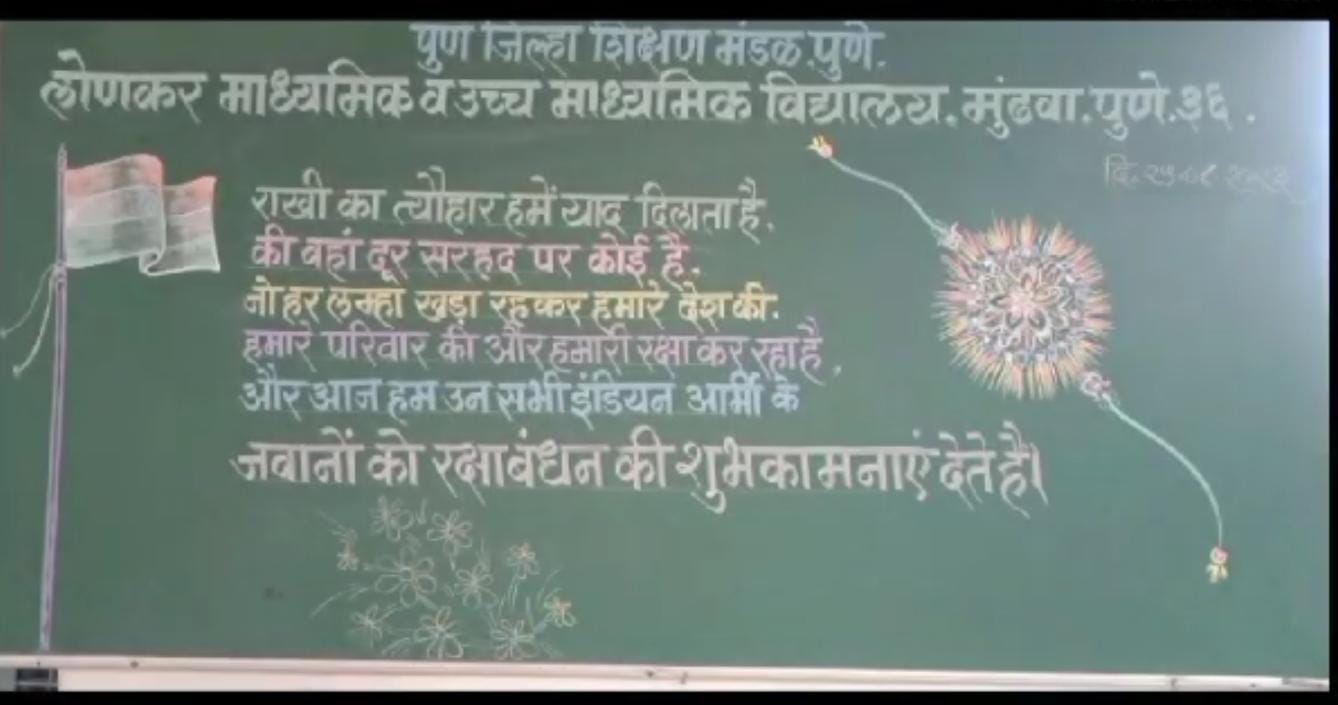 पुणे जिल्हा शिक्षण मंडळ.पुणे.
लोणकर माध्यमिक व उच्च माध्यमिक विद्यालय.मुंढवा.पुणे.३६.
राखी का त्यौहार हमें याद दिलाता है.
की वहां दूर सरहद पर कोई है.
जो हर लम्हा खड़ा रहकर हमारे देश की.
हमारे परिवार की और हमारी रक्षा कर रहा है.
और आज हम उन सभी इंडियन आर्मी के
जवानों को रक्षाबंधन की शुभकामनाएं देते है।